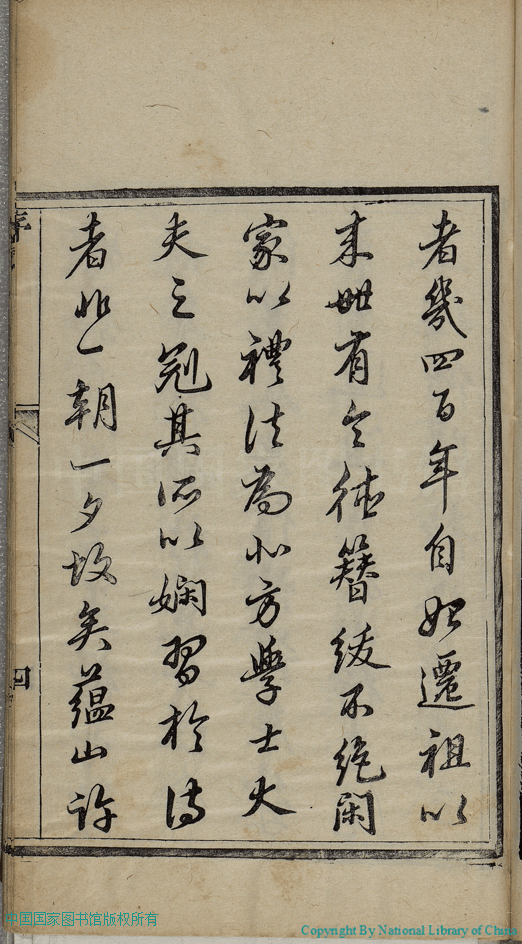 者幾四百年自始遷祖以
来世有令德簪紱不绝閑
家以禮法為北方學士大
夫之冠其所以嫻習於詩
者非一朝一夕故矣蘊山許
序
四
中国国家图书馆版权所有
Copyright By National Library of China